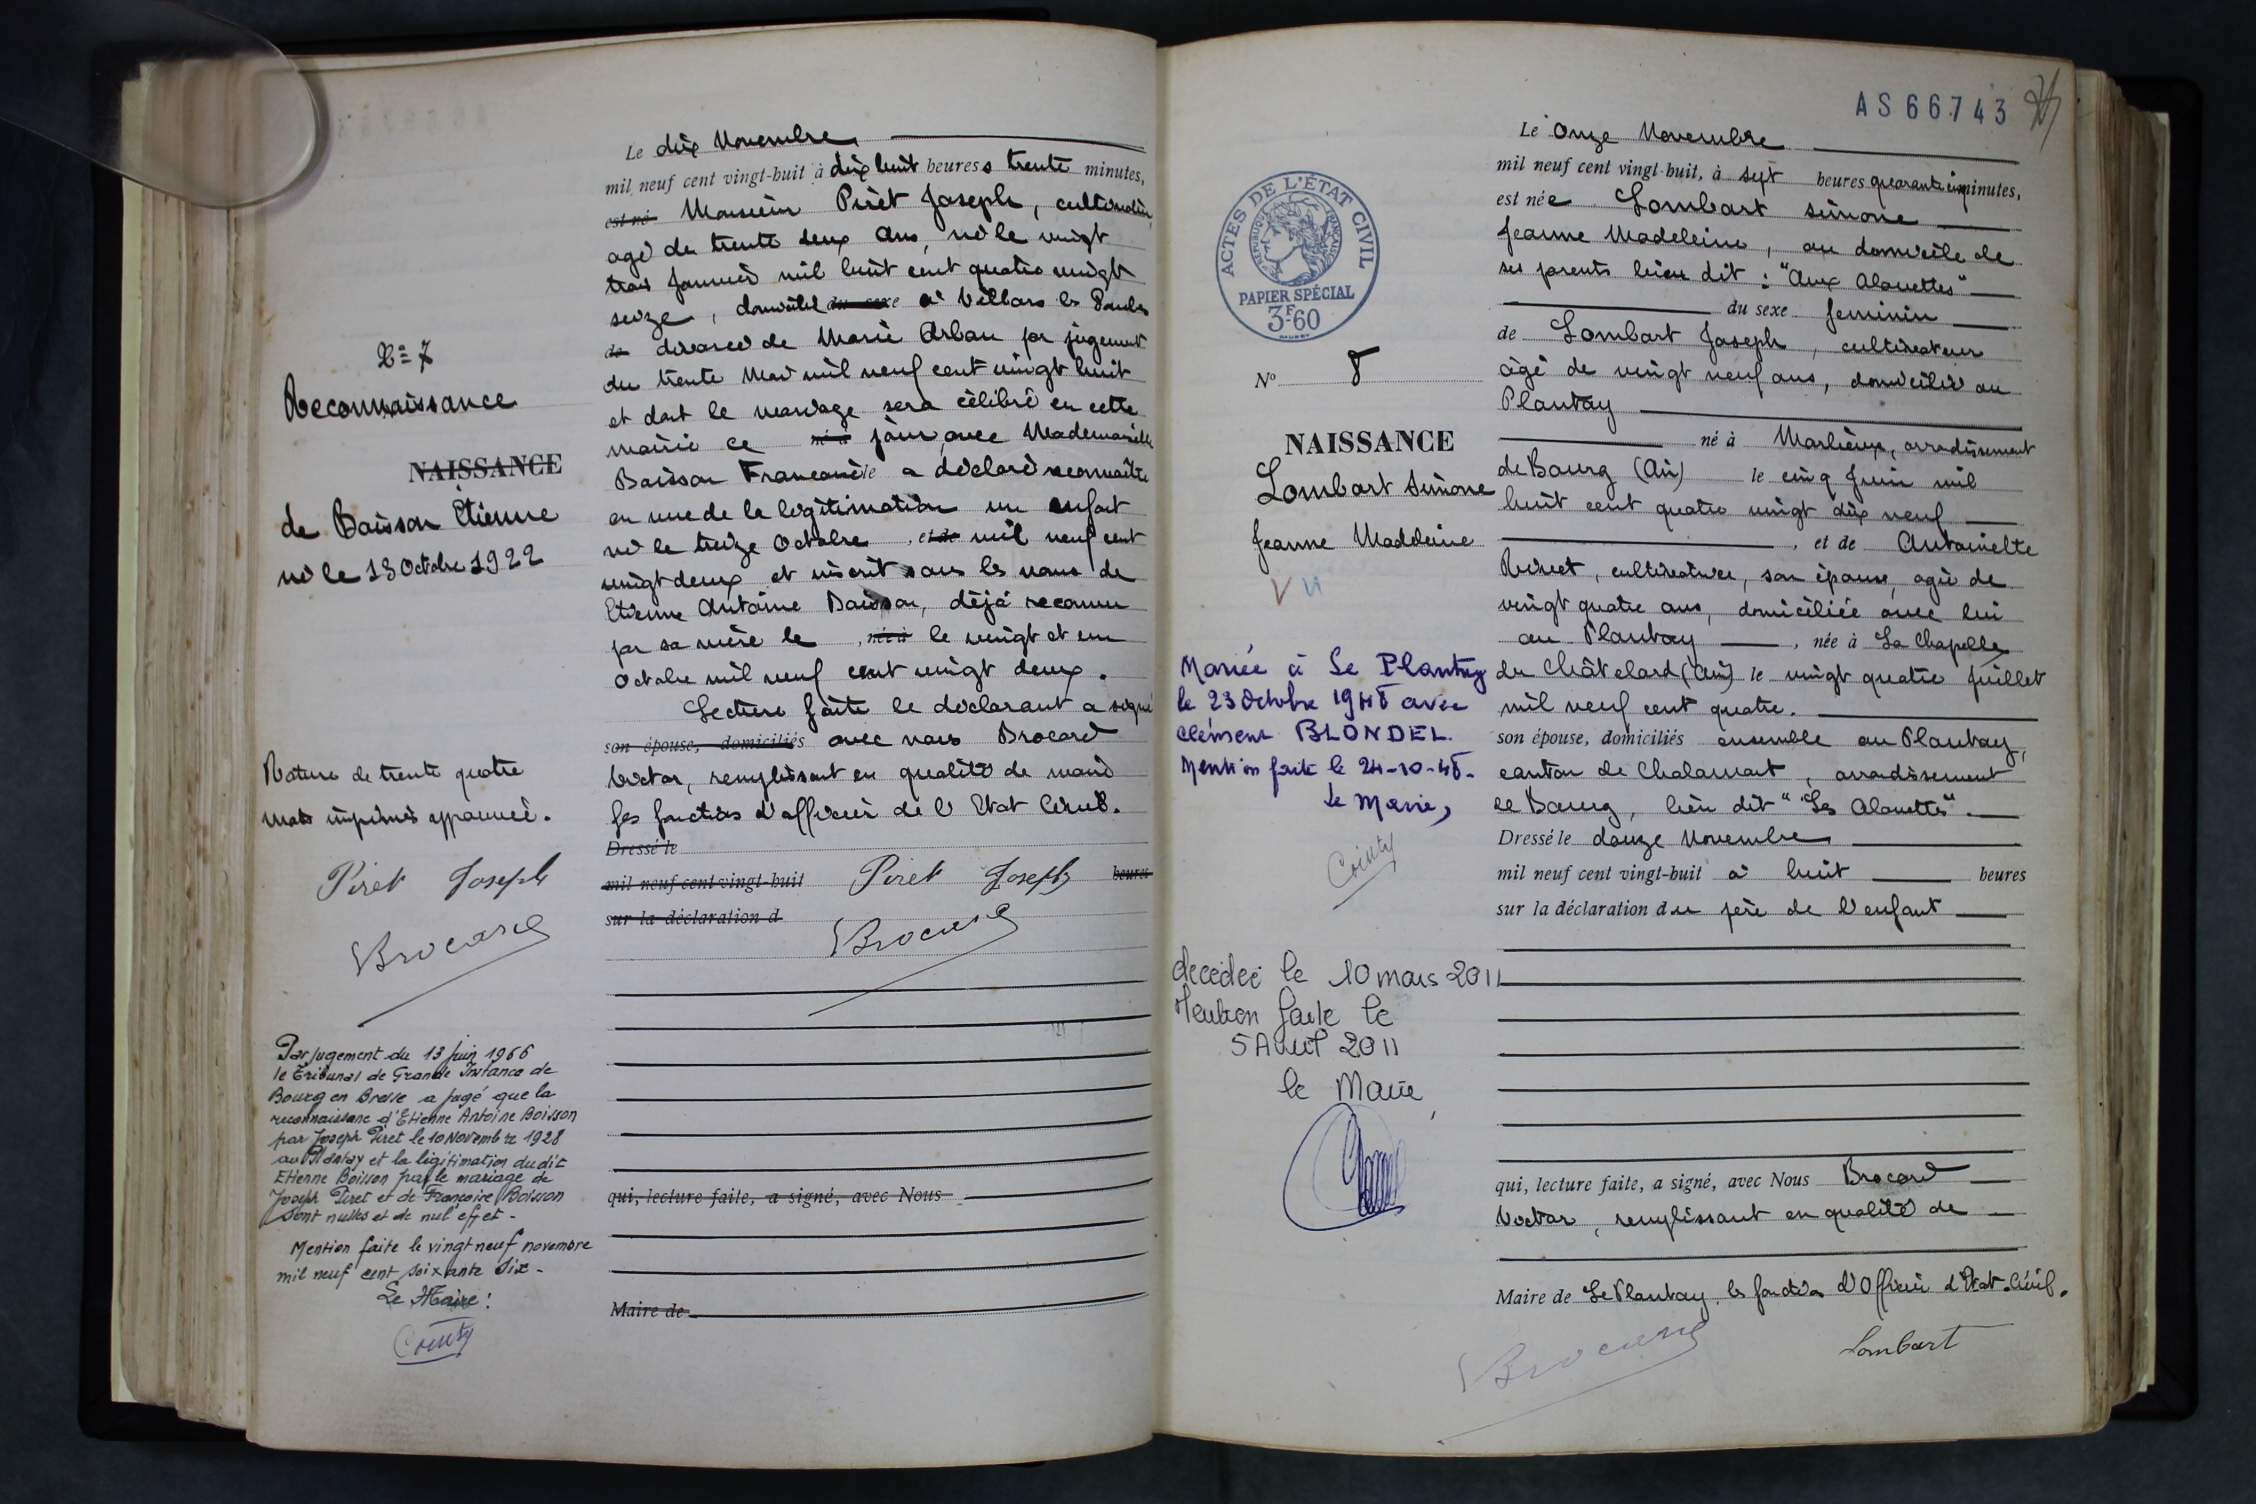 N° 7
Reconnaissance
NAISSANCE
de Boisson Etienne
né le 13 Octobre 1922
Rature de trente quatre
mots imprimés approuvée.
Piret Joseph
Brocard
Par jugement du 13 juin 1966
le Tribunal de Grande Instance de
Bourg en Bresse a jugé que la
reconnaissance d'Etienne Antoine Boisson
par Joseph Piret le 10 Novembre 1928
au Plantay et la légitimation du dit
Etienne Boisson par le mariage de
Joseph Piret et de Françoise Boisson
sont nulles et de nul effet -
Mention faite le vingt neuf novembre
mil neuf cent soixante six -
Le Maire !
Cointy
Le dix Novembre
mil neuf cent vingt-huit à dix huit heures trente minutes,
est né Monsieur Piret Joseph, cultivateur
agé de trente deux ans, né le vingt
trois Janvier mil huit cent quatre vingt
seize, domicilié du sexe à Villars les Dombes
de divorcé de Marie Arban par jugement
du trente Mai mil neuf cent vingt huit
et dont le mariage sera célébré en cette
mairie ce né à jour, avec Mademoiselle
Boisson Françoise le a déclaré reconnaître
en vue de la légitimation un enfant
né le treize Octobre , et de mil neuf cent
vingt deux et inscrit sous les noms de
Etienne Antoine Boisson, déjà reconnu
par sa mère le , née à le vingt et un
Octobre mil neuf cent vingt deux.
Lecture faite le déclarant a signé
son épouse, domiciliés avec nous Brocard
Victor, remplissant en qualité de maire
les fonctions d'officier de l'Etat Civil.
Dressé le
mil neuf cent vingt-huit Piret Joseph heures
sur la déclaration d
Brocard
qui, lecture faite, a signé, avec Nous
Maire de
AS66743
ACTES DE L'ÉTAT CIVIL
RÉPUBLIQUE FRANÇAISE
PAPIER SPÉCIAL
3F60
N° 8
NAISSANCE
Lombart Simone
Jeanne Madeleine
Vu
Mariée à Le Plantay
le 23 Octobre 1948 avec
Clément BLONDEL.
Mention faite le 24-10-48.
Le Maire,
Cointy
décédée le 10 mars 2011
Mention faite le
5 Avril 2011
le Maire,
Le onze Novembre
mil neuf cent vingt-huit, à sept heures quarante cinq minutes,
est née Lombart Simone
Jeanne Madeleine, au domicile de
ses parents lieu dit : "Aux Alouettes"
du sexe féminin
de Lombart Joseph, cultivateur
âgé de vingt neuf ans, domicilié au
Plantay
né à Marlieux, arrondissement
de Bourg (Ain) le cinq Juin mil
huit cent quatre vingt dix neuf
, et de Antoinette
cultivatrice, son épouse, agée de
vingt quatre ans, domiciliée avec lui
au Plantay , née à La Chapelle
du Châtelard (Ain) le vingt quatre Juillet
mil neuf cent quatre.
son épouse, domiciliés ensemble au Plantay,
canton de Chalamont, arrondissement
de Bourg, lieu dit "Les Alouettes".
Dressé le douze Novembre
mil neuf cent vingt-huit à huit heures
sur la déclaration du père de l'enfant
qui, lecture faite, a signé, avec Nous Brocard
Victor, remplissant en qualité de
Maire de Le Plantay les fonctions d'Officier d'Etat-Civil.
Brocard
Lombart